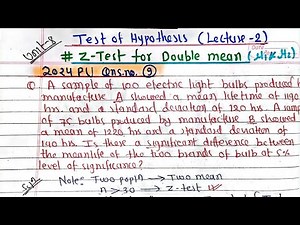 Unit-3
Test of Hypothesis (Lecture-2)
# Z-Test for Double mean
2024 PU Qns.no. 9
Q. A sample of 100 electric light bulbs produced by
manufacture A showed a mean lifetime of 1190
hrs. and a standard deviation of 120 hrs. A sample
of 75 bulbs produced by manufacture B showed
a mean of 1220 hrs and a standard deviation of
140 hrs. Is there a significant difference between
the mean life of the two brands of bulb at 5%
level of significance?
Note: Two popln → Two mean
n > 30 → Z-test